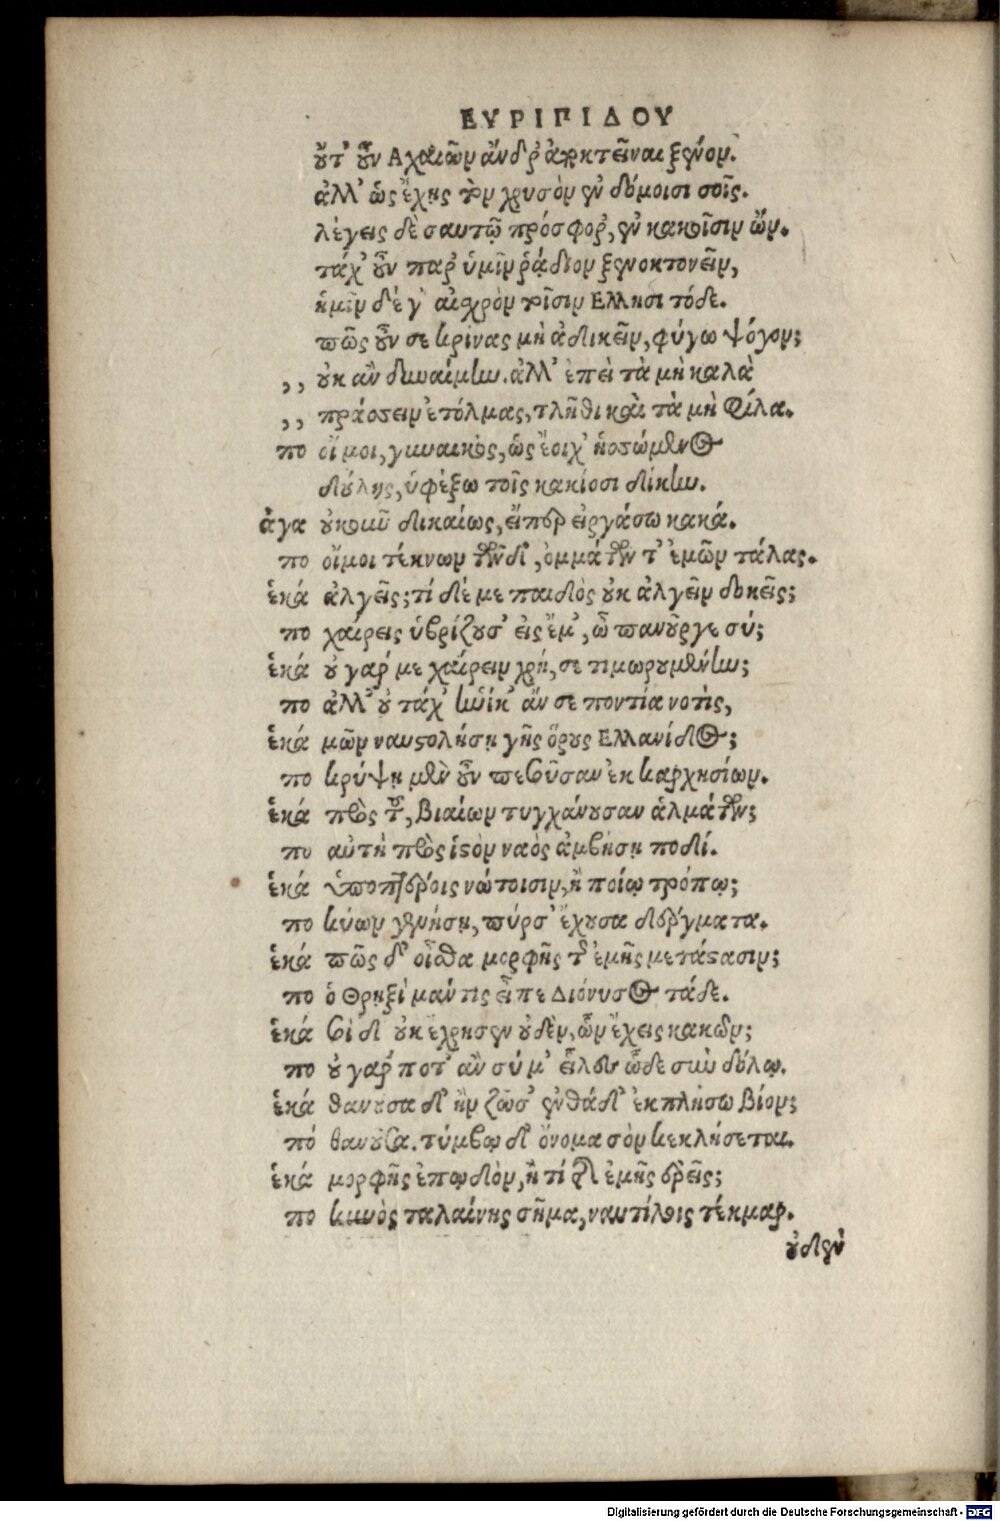 ΕΥΡΙΠΙΔΟΥ
οὔτ' οὖν Αχαιῶν ἄνδρ' ἀποκτεῖναι ξένον.
ἀλλ' ὡς ἔχῃς τὸν χρυσὸν ἐν δόμοισι σοῖς.
λέγεις δὲ σαυτῷ πρόσφορ', ἐν κακοῖσιν ὤν.
τάχ' οὖν παρ' ὑμῖν ῥᾴδιον ξενοκτονεῖν,
ἡμῖν δέ γ' αἰσχρὸν τοῖσιν Ελλησι τόδε.
πῶς οὖν σε κρίνας μὴ ἀδικεῖν, φύγω ψόγον;
,, οὐκ ἂν δυναίμην. ἀλλ' ἐπεὶ τὰ μὴ καλὰ
,, πράσσειν ἐτόλμας, τλῆθι καὶ τὰ μὴ φίλα.
πο οἴ μοι, γυναικὸς, ὡς ἔοιχ' ἡσσώμενος
δούλης, ὑφέξω τοῖς κακίοσι δίκην.
ἀγα οὐκοῦν δικαίως, εἴπερ εἰργάσω κακά.
πο οἴμοι τέκνων τῶνδ', ὀμμάτων τ' ἐμῶν τάλας.
ἑκά ἀλγεῖς; τί δέ με παιδὸς οὐκ ἀλγεῖν δοκεῖς;
πο χαίρεις ὑβρίζουσ' εἰς ἔμ', ὦ πανοῦργε σύ;
ἑκά οὐ γάρ με χαίρειν χρή, σε τιμωρουμένην;
πο ἀλλ' οὐ τάχ' ἡνίκ' ἄν σε ποντία νοτὶς,
ἑκά μῶν ναυστολήσῃ γῆς ὅρους Ελλανίδος;
πο κρύψῃ μὲν οὖν πεσοῦσαν ἐκ καρχησίων.
ἑκά πρὸς τοῦ, βιαίων τυγχάνουσαν ἁλμάτων;
πο αὐτὴ πρὸς ἱστὸν ναὸς ἀμβήσῃ ποδί.
ἑκά ὑποπτέροις νώτοισιν, ἢ ποίῳ τρόπῳ;
πο κύων γενήσῃ, πύρσ' ἔχουσα δέργματα.
ἑκά πῶς δ' οἶσθα μορφῆς τῆς ἐμῆς μετάστασιν;
πο ὁ Θρῃξὶ μάντις εἶπε Διόνυσος τάδε.
ἑκά σὶ δ' οὐκ ἔχρησεν οὐδὲν, ὧν ἔχεις κακῶν;
πο οὐ γάρ ποτ' ἂν σύ μ' εἷλες ὧδε σὺν δόλῳ.
ἑκά θανοῦσα δ' ἢν ζῶσ' ἐνθάδ' ἐκπλήσω βίον;
πό θανοῦσα. τύμβῳ δ' ὄνομα σὸν κεκλήσεται.
ἑκά μορφῆς ἐπῳδὸν, ἢ τί τῆς ἐμῆς ἐρεῖς;
πο κυνὸς ταλαίνης σῆμα, ναυτίλοις τέκμαρ.
οὐδὲν
Digitalisierung gefördert durch die Deutsche Forschungsgemeinschaft - DFG